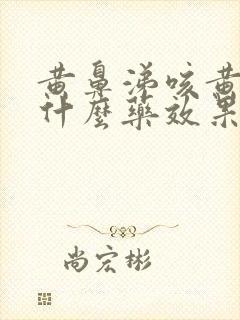 黄鼻涕咳黄
什麼藥效果
尚宏彬